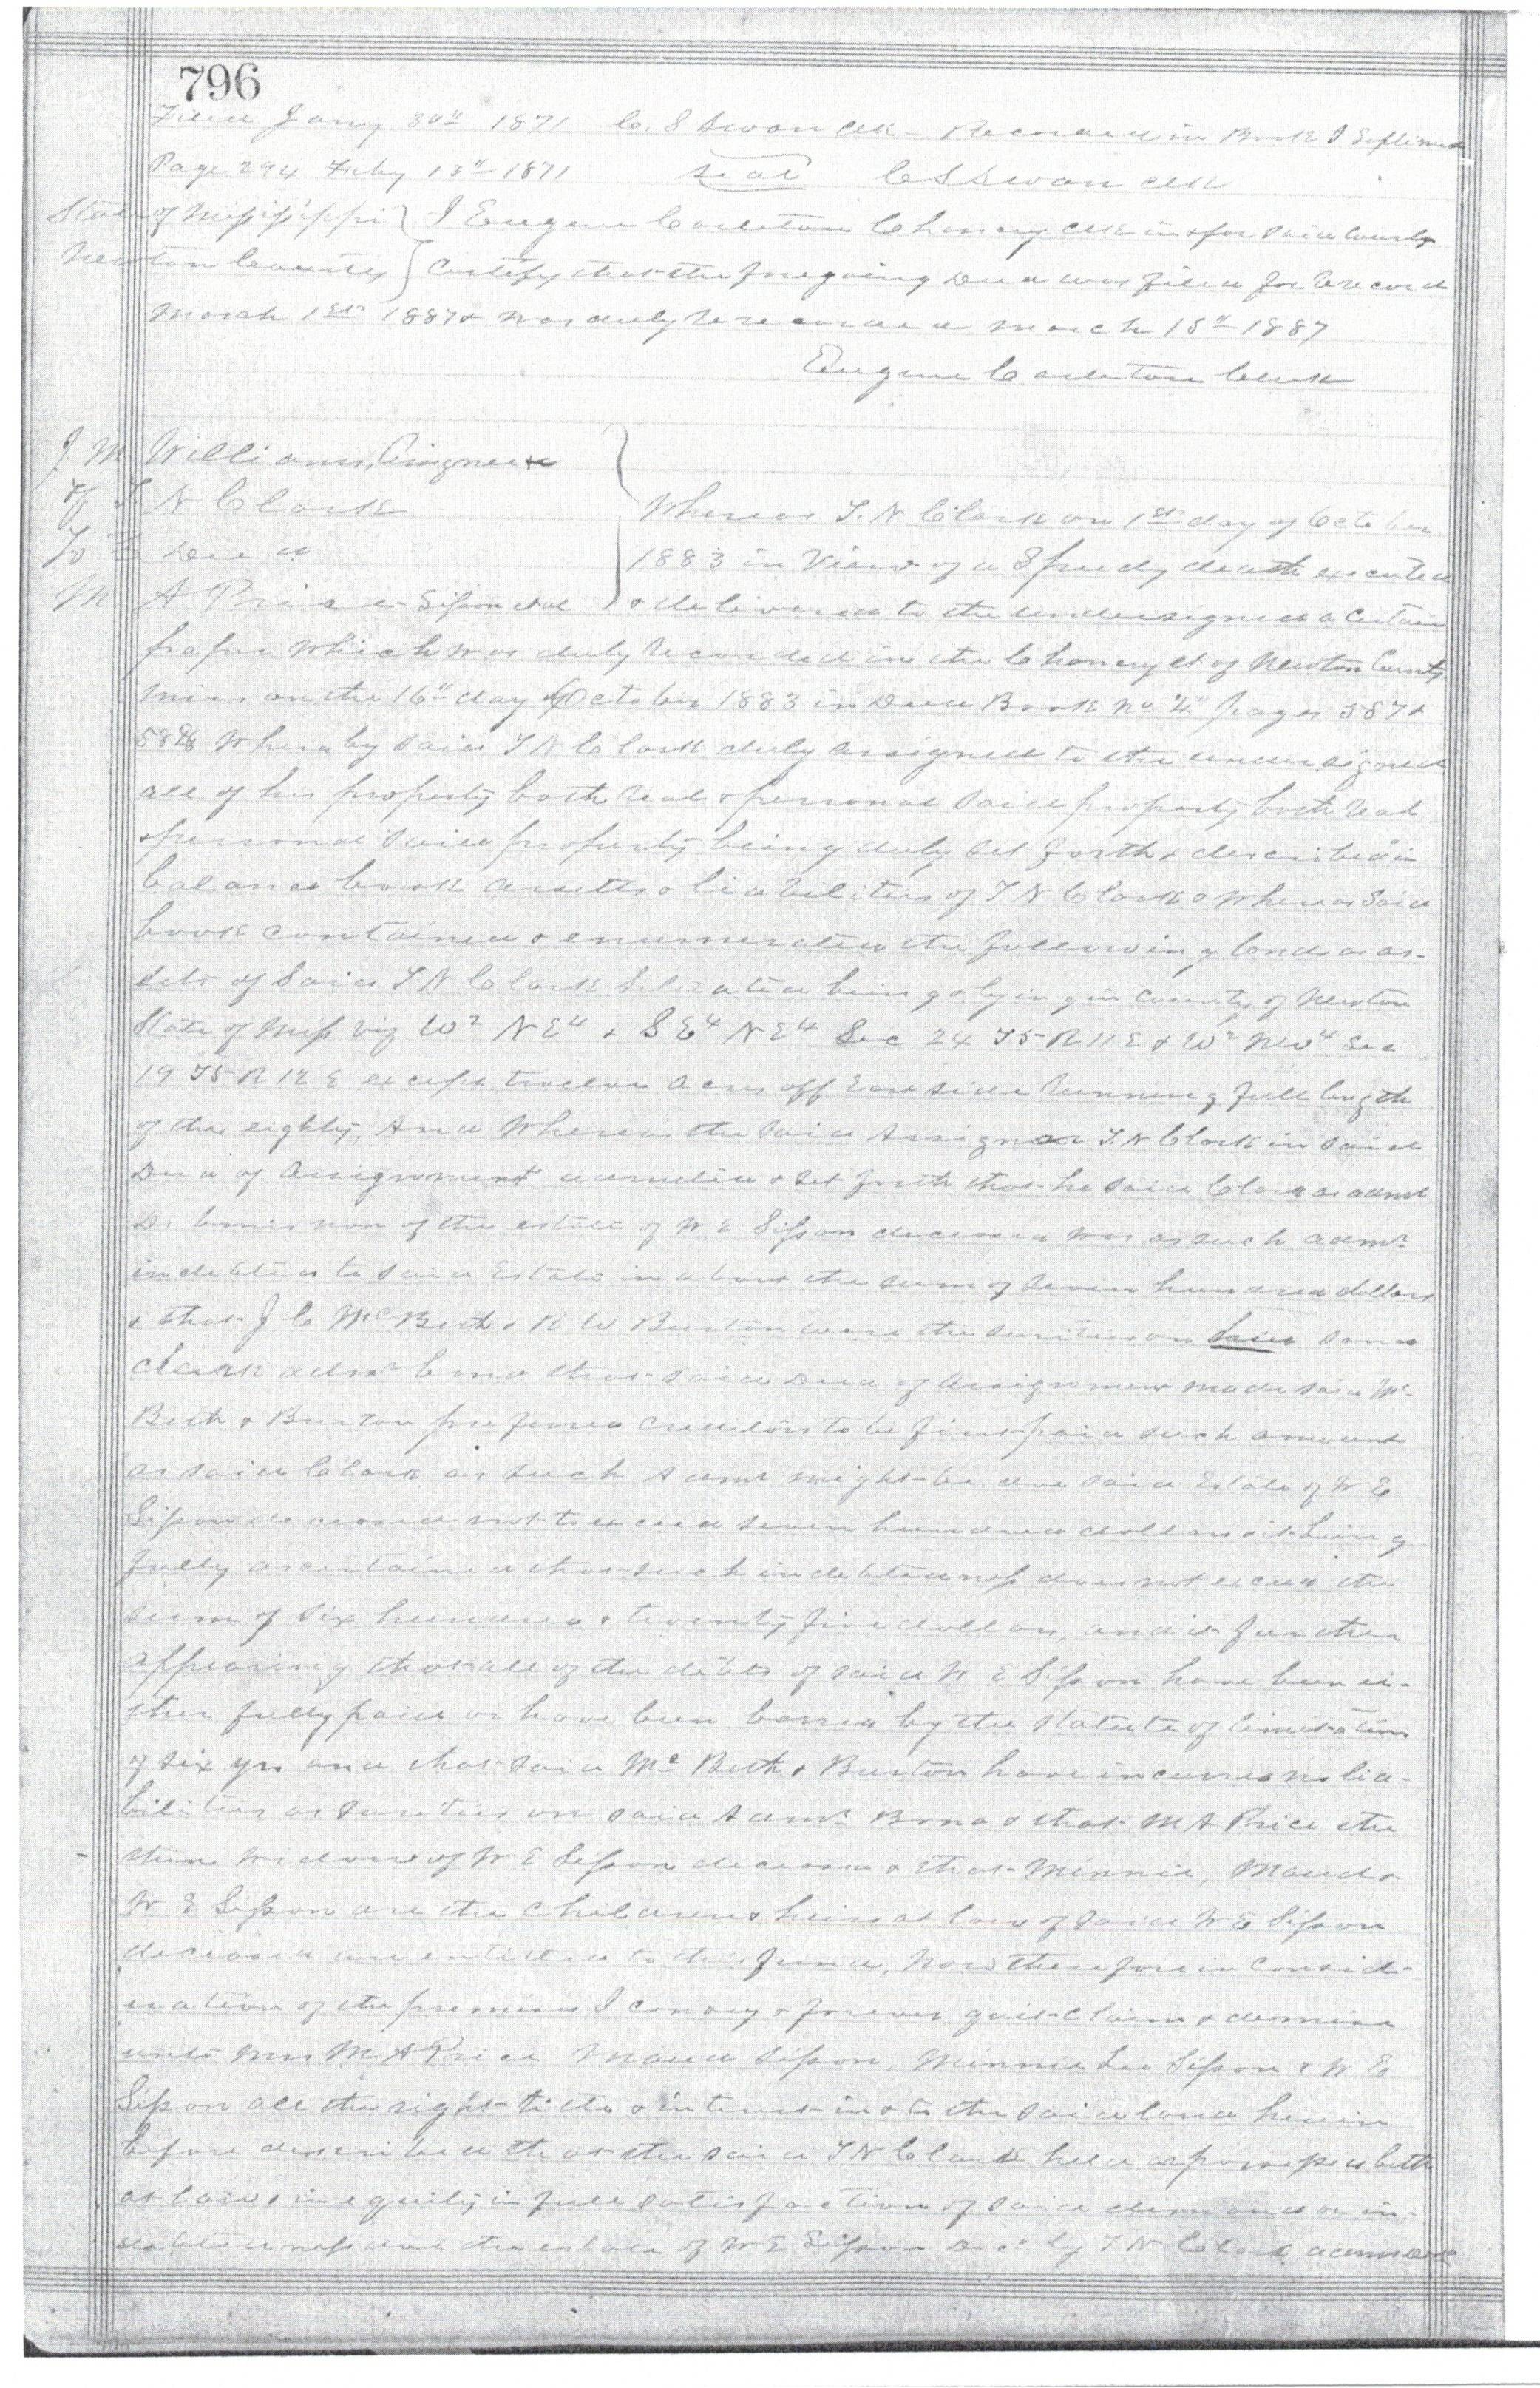 796
Filed Jany 30th 1871 C. S Swan Clk - Recorded in Book I
Page 294 Feby 13th 1871 seal C S Swan Clk
State of Mississippi } I Eugene Carleton Chancery Clk in & for said County
Newton County } Certify that the foregoing Deed was filed for Record
March 1st 1887 & was duly Recorded March 15th 1887
Eugene Carleton Clerk
J. M Williams, Assignee
of T. N Clark
To Deed
M A Price Sisson et al
Whereas T. N Clark on 1st day of October
1883 in View of a Speedy death executed
& delivered to the undersigned a Certain
paper which was duly Recorded in the Chancery Ct of Newton County
Miss on the 16th day of October 1883 in Deed Book No "4" pages 587 &
588 Whereby said T N Clark duly assigned to the undersigned
all of his property both Real & personal said property both Real
& personal said property being duly set forth & described in
balance book assetts & liabilities of T N Clark & whereas said
book contained & enumerated the following lands as as-
sets of said T N Clark Situated being & lying in County of Newton
State of Miss viz W2 NE4 & SE4 NE4 Sec 24 T5 R 11 E & W2 NW4 Sec
19 T5 R 12 E except twelve acres off East side Running full length
of the eighty, And Whereas the said Assignor T. N Clark in said
Deed of Assignment admitted & set forth that he said Clark as admr
De bonis non of the estate of W E Sisson deceased was as such admr
indebted to said Estate in about the sum of seven hundred dollars
& that J C McBeth & R W Burton were the surities on said
Clark admr bond that said Deed of Assignment made said Mc-
Beth & Burton preferred creditors to be first paid such amount
as said Clark as such Admr might be due said Estate of W E
Sisson deceased not to exceed seven hundred dollars it being
fully ascertained that such indebtedness does not exceed the
sum of six hundred & twenty five dollars, and it further
appearing that all of the debts of said W E Sisson have been ei-
ther fully paid or have been barred by the statute of limitation
of six yrs and that said McBeth & Burton have incurred no lia-
bilities as surities on said Admr Bond & that M A Price the
then widow of W E Sisson deceased & that Minnie, Maud &
W E Sisson are the children & heirs at law of said W E Sisson
deceased are entitled to this fund, Now therefore in consid-
eration of the premises I convey & forever quit-claim & demise
unto Mrs M A Price Maud Sisson, Minnie Lee Sisson & W E
Sisson all the right title & interest in & to the said land herein
before described that the said T N Clark held or possessed both
at law & in equity in full satisfaction of said demand or in-
debtedness due the estate of W E Sisson Decd by T N Clark admr